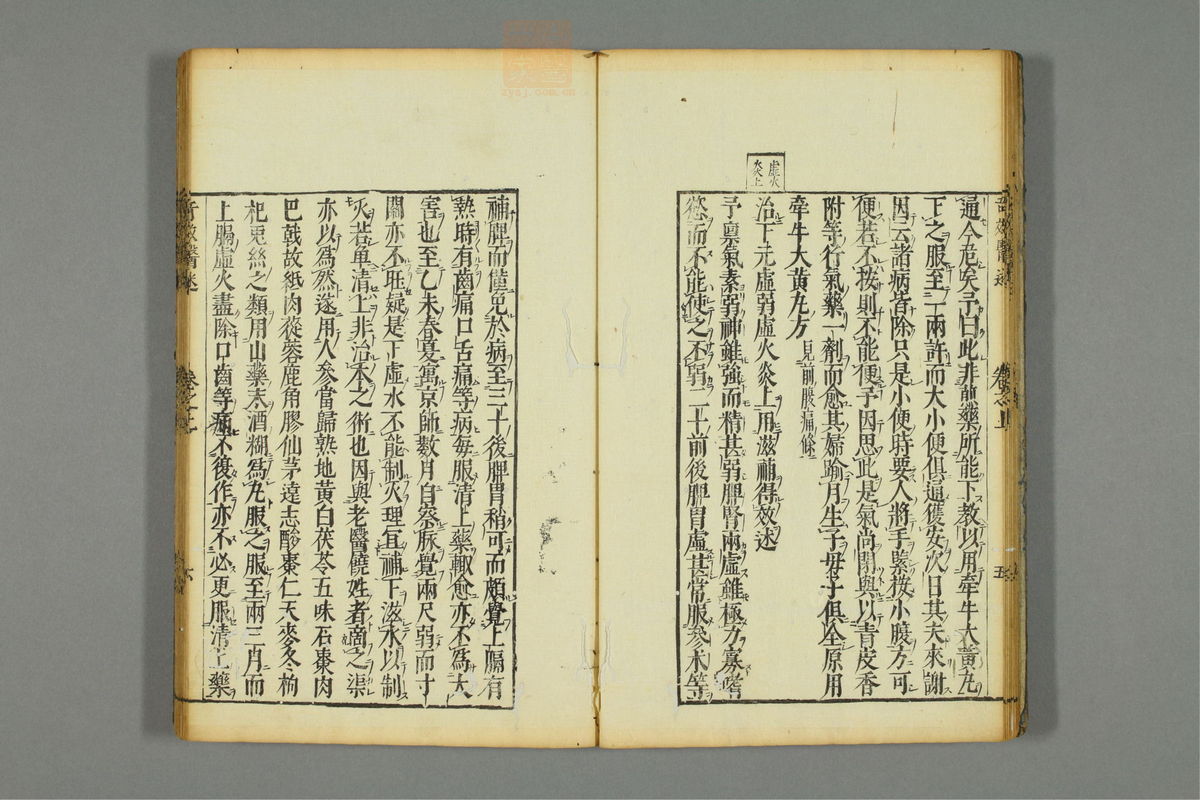 奇效醫述 卷之上 五
通今危矣予曰此非煎藥所能下教以用牽牛大黃丸
下之服至二兩許而大小便俱通獲安次日其夫來謝
因云諸病皆除只是小便時要人將手緊按小腹方可
便若不按則不能便予因思此是氣尚閉與以青皮香
附等行氣藥一劑而愈其婦踰月生子母子俱全原用
牽牛大黃丸方見前腹痛條
虛火炎上
治下元虛弱虛火炎上用滋補得效述
予稟氣素弱神雖強而精甚弱脾腎兩虛雖極力寡嗜
慾而不能使之不弱二十前後脾胃虛甚常服參朮等
補脾而僅免於病至三十後脾胃稍可而頗覺上膈有
熱時有齒痛口舌痛等病每服清上藥輙愈亦不為大
害也至乙未春夏寓京師數月自察脈覺兩尺弱而寸
關亦不旺疑是下虛水不能制火理宜補下滋水以制
火若單清上非治本之術也因與老醫饒姓者商之渠
亦以為然遂用人參當歸熟地黃白茯苓五味石棗肉
巴戟故紙肉蓯蓉鹿角膠仙茅遠志酸棗仁天麥冬枸
杞兎絲之類用山藥末酒糊為丸服之服至兩三月而
上膈虛火盡除口齒等痛不復作亦不必更服清上藥
奇效醫述 卷之上 六
zysj.com.cn